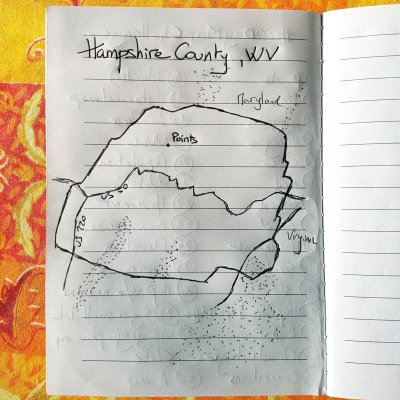 Hampshire County, WV
Maryland
Points
US 50
US 220